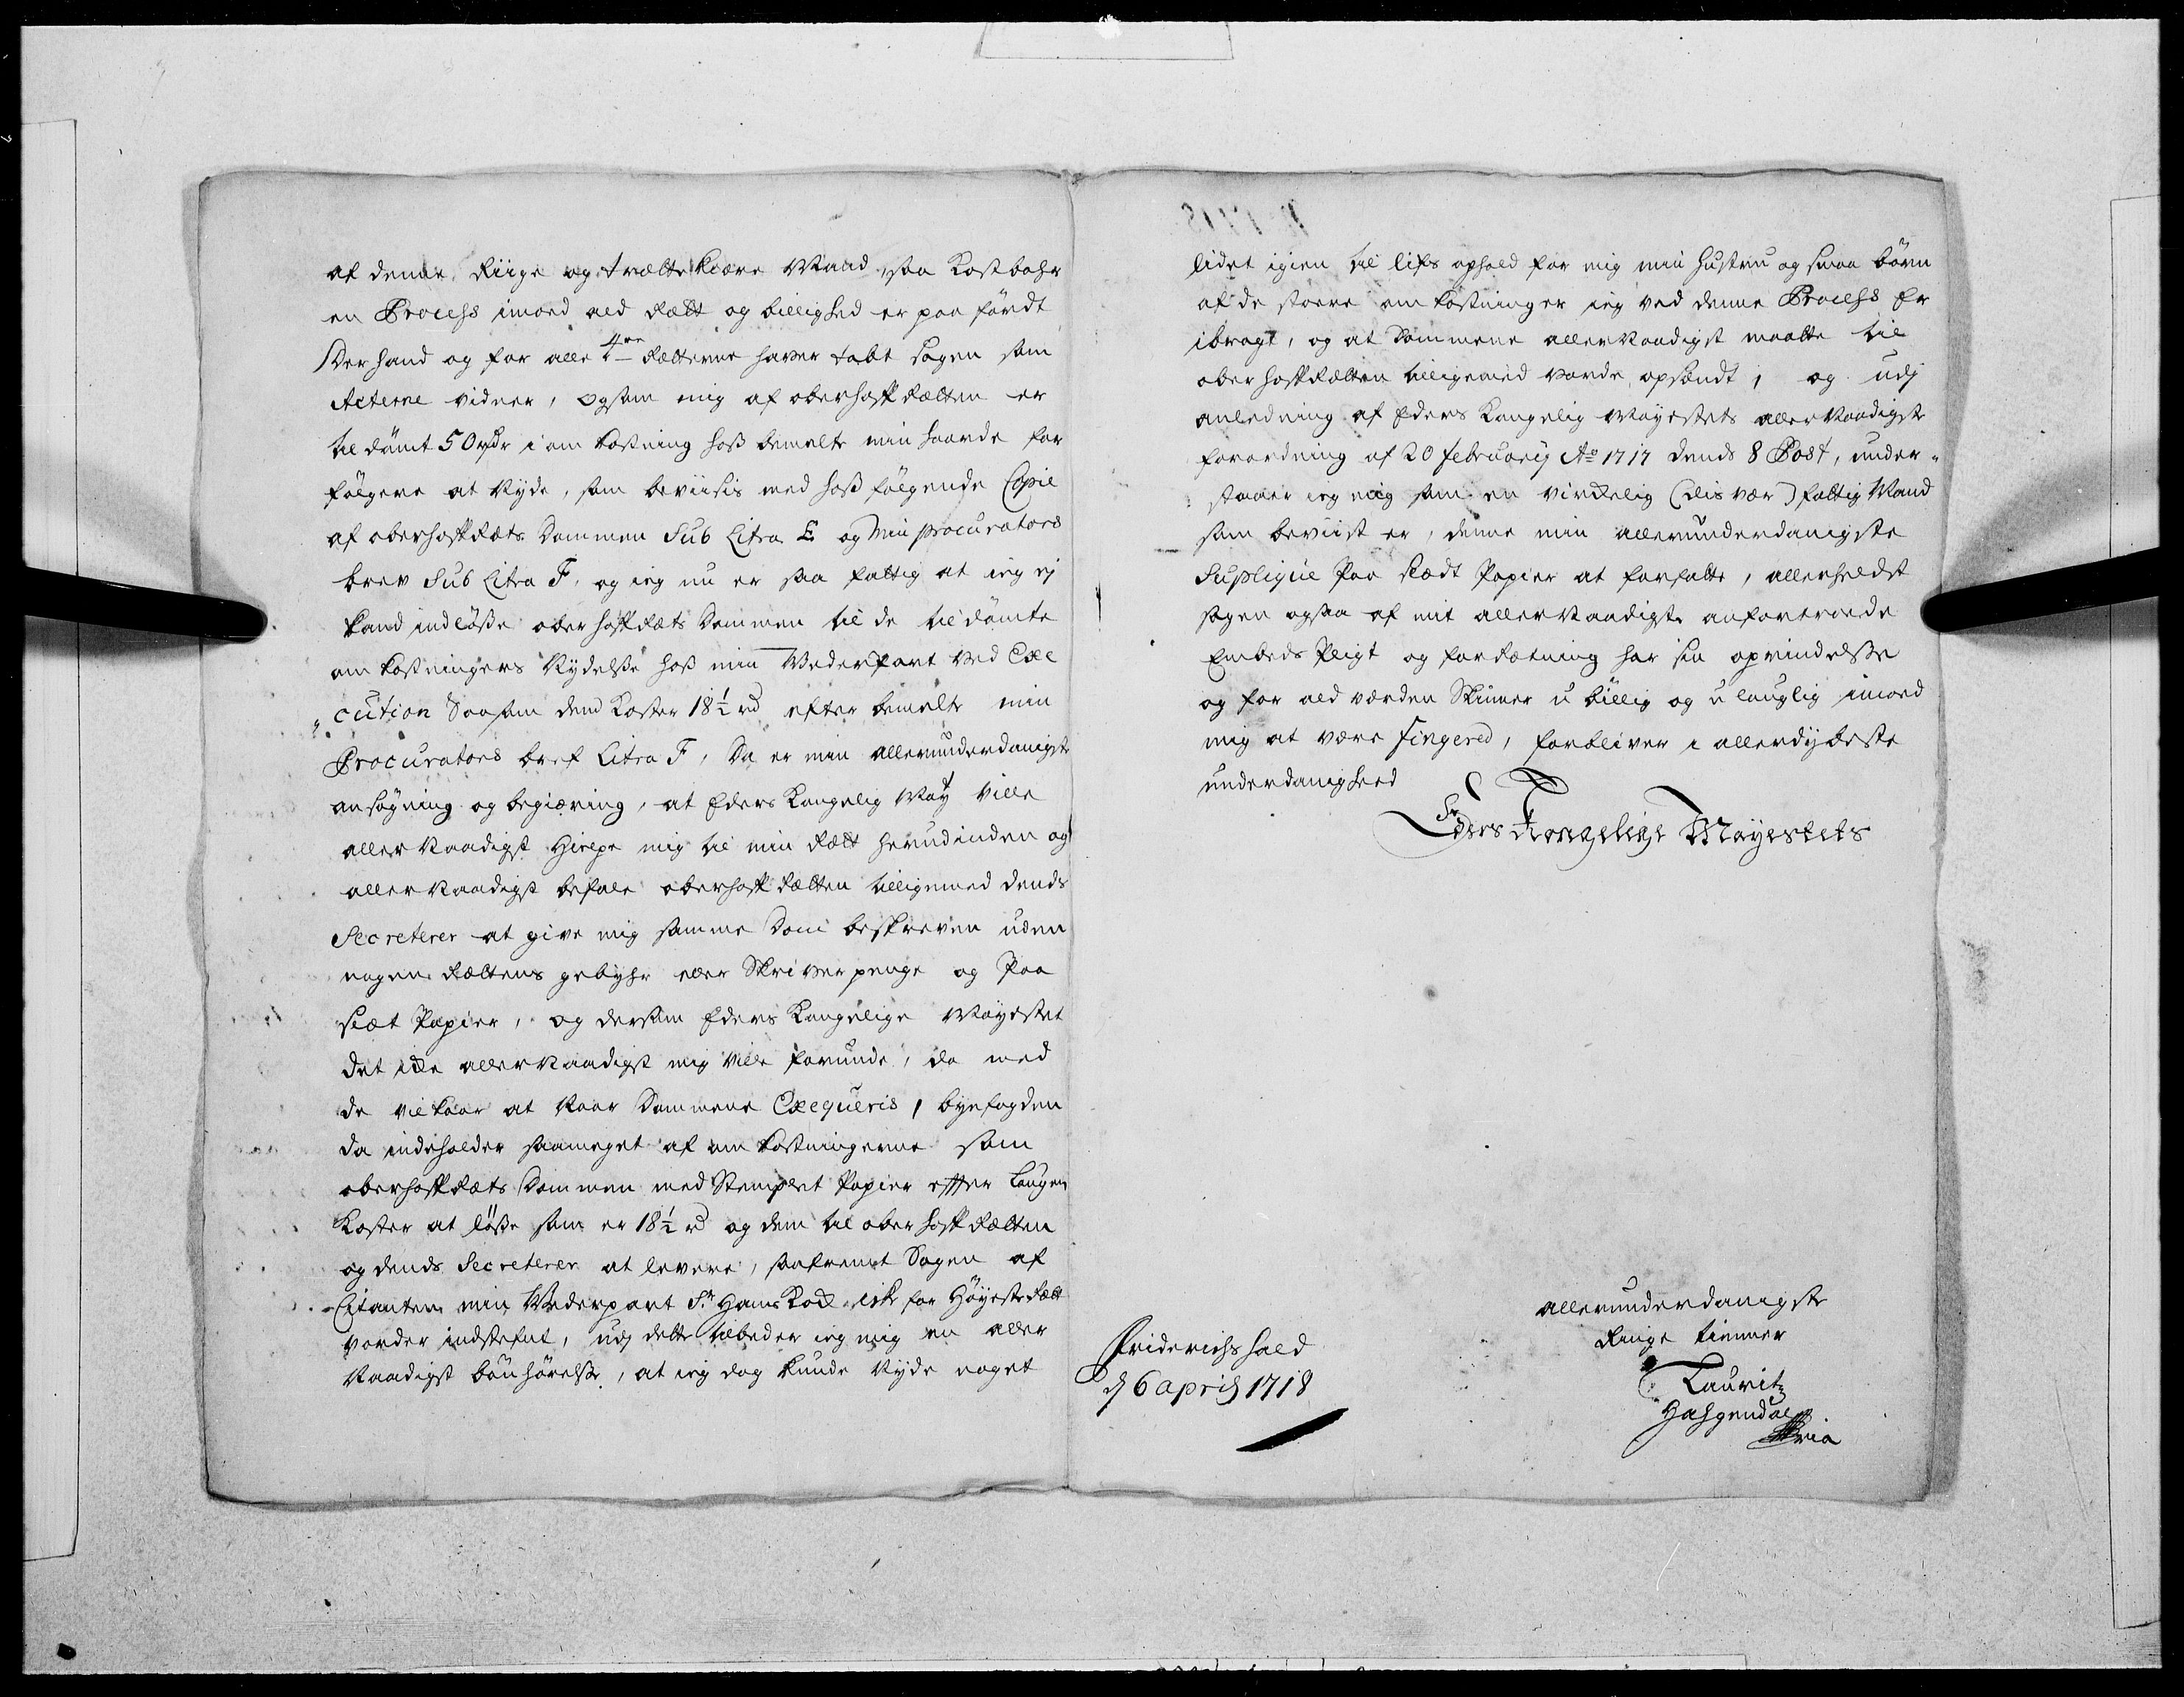 af denne Riige og trættekiære Mand, saa Kostbahr
en Process imoed ald Rætt og billighed er paa fördt
Der hand og for alle 4re Rætterne haver tabt sagen som
Acterne vidner, ogsom mig af oberhoffRætten er
til dömt 50 rdr i om kostning hoß bemelte min haarde for
fölgere at Nyde, som beviisis med hoß fölgende Copie
af oberhoffRæts Dommen Sub Litra E og Min procurators
brev Sub Litra F, og ieg nu er saa fattig at ieg ej
kand indlöße oberhoffRæts Dommen til de til dömte
om kostningers Nydelße hoß min Wederpart Ved Exe
cution Saasom dend Koster 18½ rd efter bemelte min
Procurators bref Litra F, Da er min allerunderdanigste
ansögning og begiæring, at Eders Kongelig May Ville
allernaadigst Hielpe mig til min Rætt herudinden og
allernaadigst befale oberhoffRætten tilligemed dends
Secreterer at give mig samme Dom beskreven uden
nogen Rættens gebyhr eller Skriverpenge og Paa
slæt Papier, og dersom Eders Kongelige Mayestet
det icke allernaadigst mig Ville forunde, da med
de vilkaar at Naar Dommene Exequeris, byefogden
da indeholder saameget af om kostningerne som
oberhoffRæts Dommen med Stemplet Papier effter Laugen
Koster at löße som er 18½ rd og dem til oberhoffRætten
og dends Secreterer at levere, saafremt Sagen af
Citanten min Wederpart Sr Hans Kock icke for HöyesteRætt
vorder indstefnt, udj dette tilbeder ieg mig en aller
Naadigst bönhörelße, at ieg dog kunde Nyde noget
lidet igien til lifs ophold for mig min hustru og smaa börn
af de stoere om kostninger ieg ved denne Process Er
ibragt, og at Dommene allernaadigst maatte til
oberhoffRætten tilligemed vorde opsændt, og udj
anledning af Eders Kongelig Mayestets allernaadigste
forordning af 20 februarij Ao 1717 dends 8 Post, under-
staaer ieg mig som en virckelig (dis vær) fattig Mand
som beviist er, denne min allerunderdanigste
Supliqve Paa slædt Papier at forfatte, allerheldst
sagen ogsaa af mit allernaadigste anfortroede
Embeds Pligt og forRætning har sin oprindelsse
og for ald værden Skinner u billig og u lauglig imoed
mig at være fingered, forbliver i allerdybeste
underdanighed
Eders Kongelige Mayestets
allerunderdanigste
Ringe tienner
Lauritz
Friderichshald
d 6 april 1718